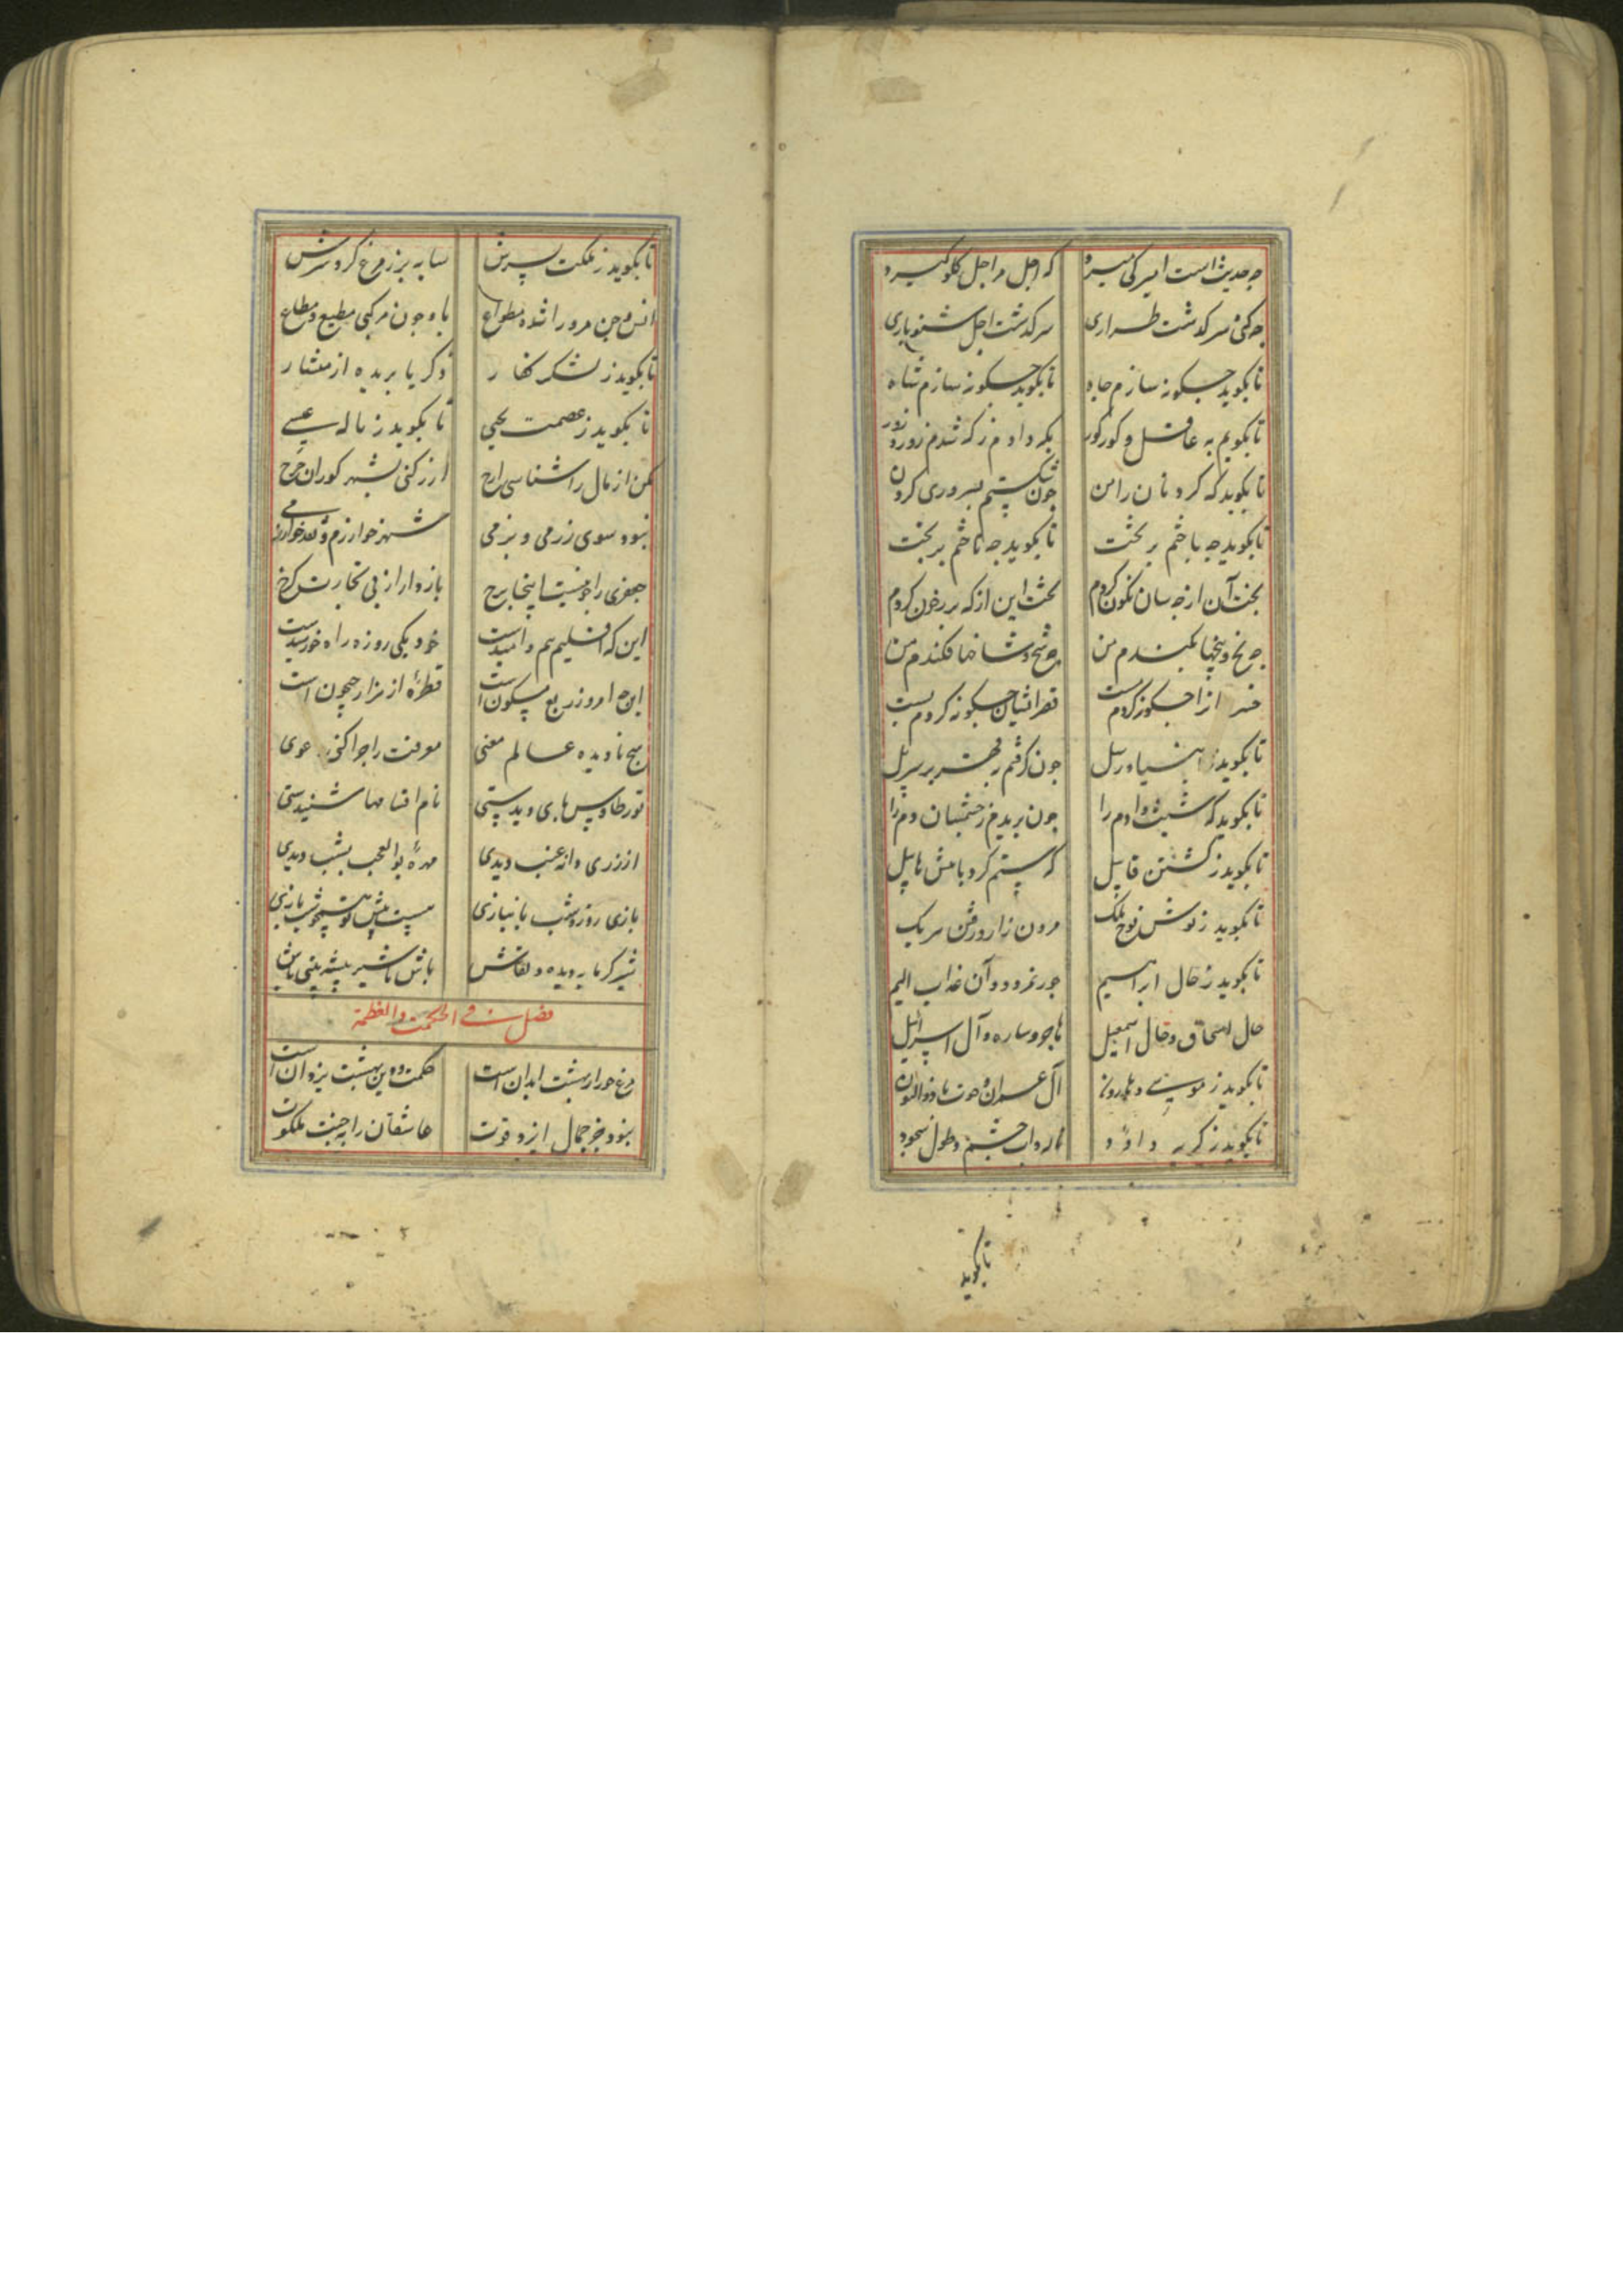 چه حدیث است امیر کی میرد که اجل مر اجل گلو گیرد
چه کنی سرگذشت طراری سرگذشت اجل شنو باری
تا بگوید چگونه سازم جاه تا بگوید چگونه سازم شاه
تا بگویم به عاقل و کور و کور بکه دادم زر که شدم زور زور
تا بگوید که گردنان را من چون شکستم بسروری گردن
تا بگوید چه باختم بر تخت تا بگوید چه تاختم بر بخت
تخت آن از چه سان نگون کردم تخت این از که پر ز خون کردم
چه بخ و بیخها بکندم من چه شخ و شاخها فکندم من
سر از چگونه کردم پست قصر ایشان چگونه کردم پست
تا بگوید ز انبیا و رسل چون گرفتم رهت بر سر پل
تا بگوید که شیث و آدم را چون بریدم ز جسمشان دم را
تا بگوید ز کشتن قابیل که ستم کرد با منش هابیل
تا بگوید ز نوش نوح ملک مردن زار و رفتن سر یک
تا بگوید ز حال ابراهیم جور نمرود و آن عذاب الیم
حال اسحاق و حال اسمعیل هاجر و ساره و آل اسرائیل
تا بگوید ز موسی و هارون آل عمران و حوت با ذوالنون
تا بگوید ز گریه داود ناله و آب چشم و طول سجود
تا بگوید
تا بگوید ز ملکت پسرش سایه بر زد مرغ گرد سرش
انس و جن مرو را شده مطواع باد چون مرکبی مطیع و مطاع
تا بگوید ز لشکر کفار زکریا بریده از منشار
تا بگوید ز عصمت یحیی تا بگوید ز ناله عیسی
مکن از مال راشناسی راح ارز کنی بشهر کوران خرج
نبود سوی رزمی و بزمی شهر خوارزم و نقد خوارزمی
جعفری را چو نیست اینجا برج باز دار از پی تجارت کرخ
این که اقلیم بیم و امیدست خود یکی روزه راه خورشیدست
این چه امروز ربع مسکون است قطرهٔ از هزار جیحون است
هیچ نادیده عالم معنی معرفت را چرا کنی دعوی
تو ز طاوس پای دیدستی نام افسانها شنیدستی
از رزی دانه عنب دیدی مهرهٔ بوالعجب بشب دیدی
بازی روز و شب بانبازی هست پیش تو همچو شب بازی
شیر گرمابه دیده و نقاش باش تا شیر بیشه بینی باش
فصل فی الحکمت والعظمة
مرغ و حور از بهشت ابدان است حکمت و دین بهشت یزدان است
نبود جز جمال ایزد قوت عاشقان را به جنت ملکوت